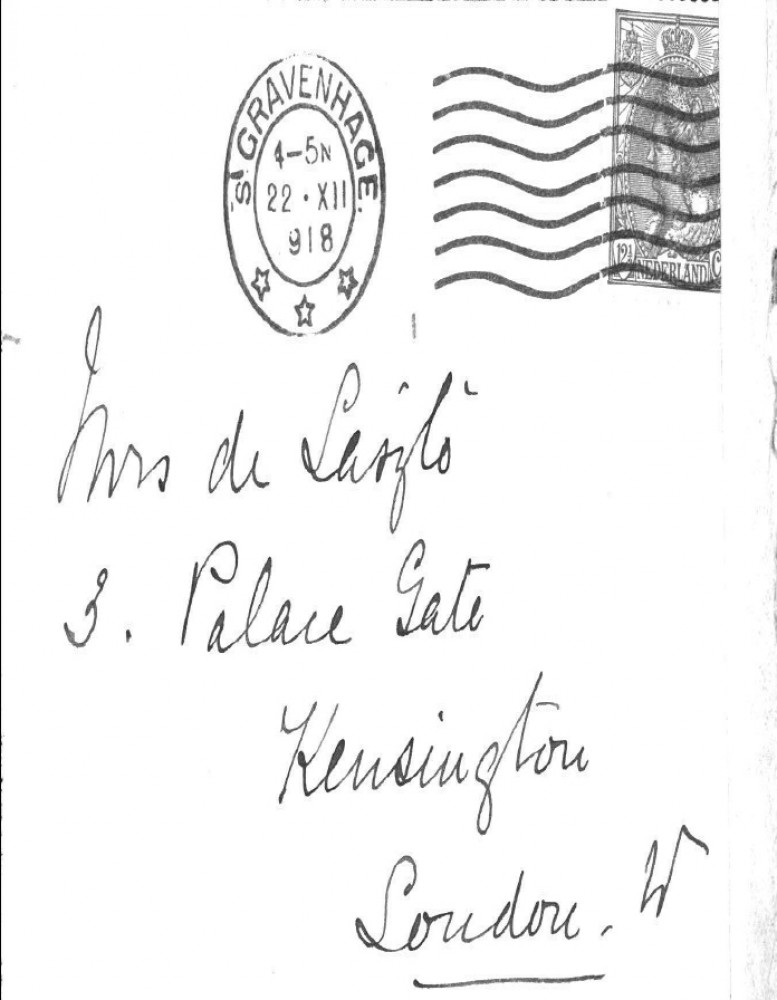 'S GRAVENHAGE.
4-5N
22·XII
918
12½ NEDERLAND C
Mrs de László
3. Palace Gate
Kensington
London. W